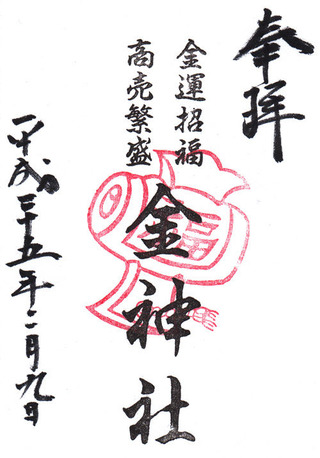 奉拝
金運招福
商売繁盛
金神社
平成二十五年二月九日